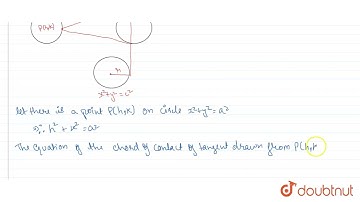 P(h,k)
r
x²+y²=c²
let there is a point P(h,k) on circle x²+y²=a²
∴ h²+k²=a²
The equation of the chord of contact of tangent drawn from P(h,k
doubtnut